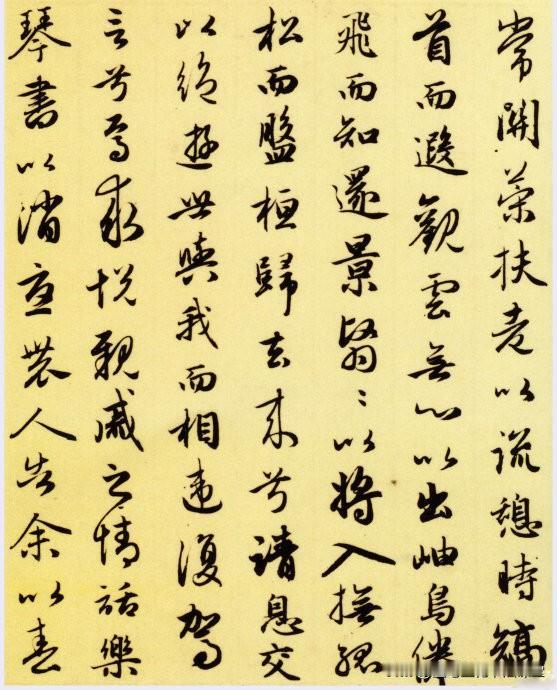 常關策扶老以流憩時矯
首而遐觀雲無心以出岫鳥倦
飛而知還景翳〻以將入撫孤
松而盤桓歸去来兮請息交
以絕遊世與我而相違復駕
言兮焉求悅親戚之情話樂
琴書以消憂農人告余以春